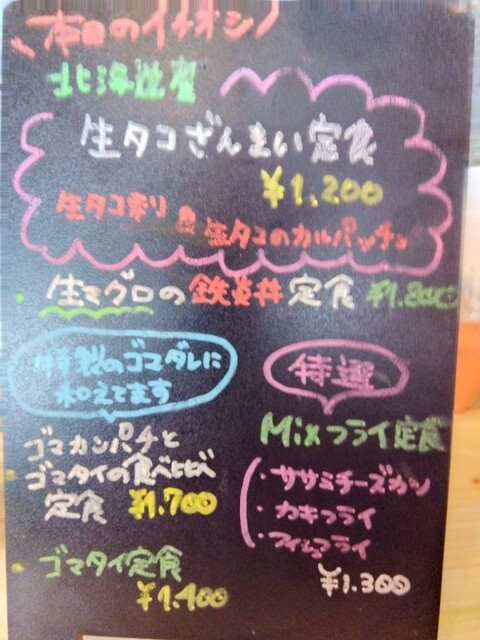 本日のイチオシ!
北海道産
生タコざんまい定食
¥1,200
生タコ刺し & 生タコのカルパッチョ
・生マグロの鉄炎丼定食 ¥1.800
特製のゴマダレに
和えてます
ゴマカンパチと
・ゴマタイの食べ比べ
定食 ¥1.700
・ゴマタイ定食
¥1.400
特選
Mixフライ定食
・ササミチーズカツ
・カキフライ
・フィッシュフライ
¥1.300